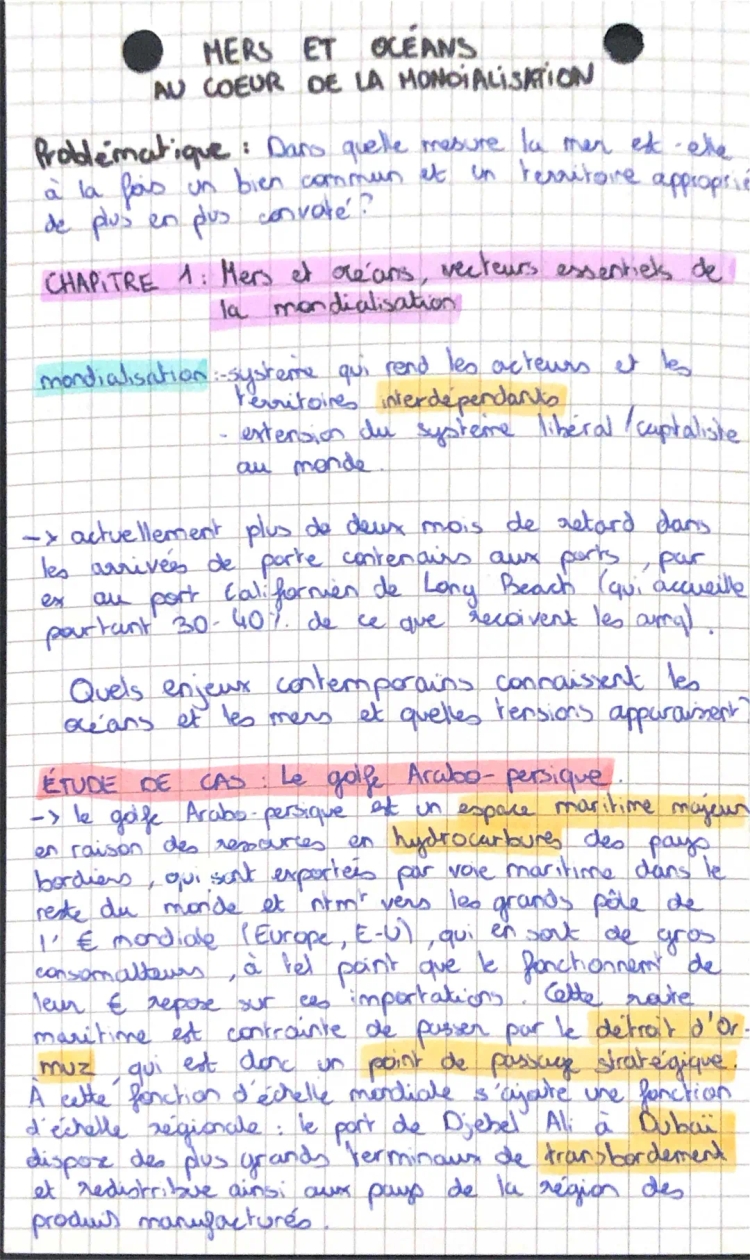 MERS ET OCÉANS
AU COEUR DE LA MONDIALISATION
Problématique : Dans quelle mesure la mer est-elle
à la fois un bien commun et un territoire approprié
de plus en plus convoité ?
CHAPITRE 1 : Mers et océans, vecteurs essentiels de
la mondialisation
mondialisation : - système qui rend les acteurs et les
territoires interdépendants
- extension du système libéral / captaliste
au monde.
-> actuellement plus de deux mois de retard dans
les arrivées de porte contenairs aux ports, par
ex au port Californien de Long Beach (qui accueille
pourtant 30-40% de ce que reçoivent les amq).
Quels enjeux contemporains connaissent les
océans et les mers et quelles tensions apparaissent ?
ÉTUDE DE CAS : Le golfe Arabo-persique.
-> le golfe Arabo-persique est un espace maritime majeur
en raison des ressources en hydrocarbures des pays
bordiers, qui sont exportées par voie maritime dans le
reste du monde et ntmt vers les grands pôle de
l'€ mondiale (Europe, E-U), qui en sont de gros
consomatteurs, à tel point que le fonctionnemt de
leur € repose sur ces importations. Cette route
maritime est contrainte de passer par le détroit d'Or-
muz, qui est donc un point de passage stratégique.
À cette fonction d'échelle mondiale s'ajoute une fonction
d'échelle régionale : le port de Djebel Ali à Dubaï
dispose des plus grands terminaux de transbordement
et redistribue ainsi aux pays de la région des
produis manufacturés.